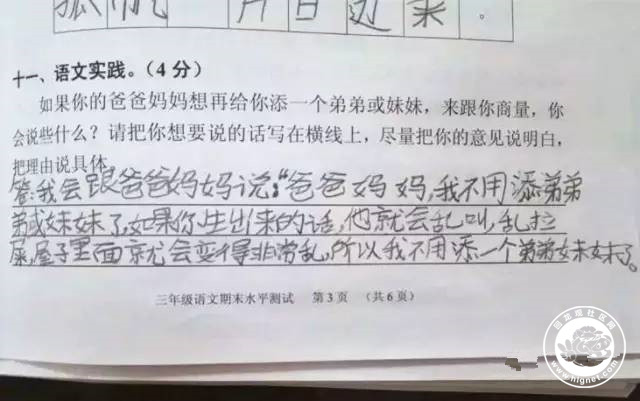 孤帆一片日边来。
十一、语文实践。（4 分）
如果你的爸爸妈妈想再给你添一个弟弟或妹妹，来跟你商量，你
会说些什么？请把你想要说的话写在横线上，尽量把你的意见说明白，
把理由说具体。
答：我会跟爸爸妈妈说：“爸爸妈妈，我不用添弟弟
弟或妹妹了，如果你生出来的话，他就会乱叫，乱拉
屎，屋子里面就会变得非常乱，所以我不用添一个弟弟妹妹了。
三年级语文期末水平测试 第 3 页 （共 6 页）
回龙观社区网
www.hlgnet.com